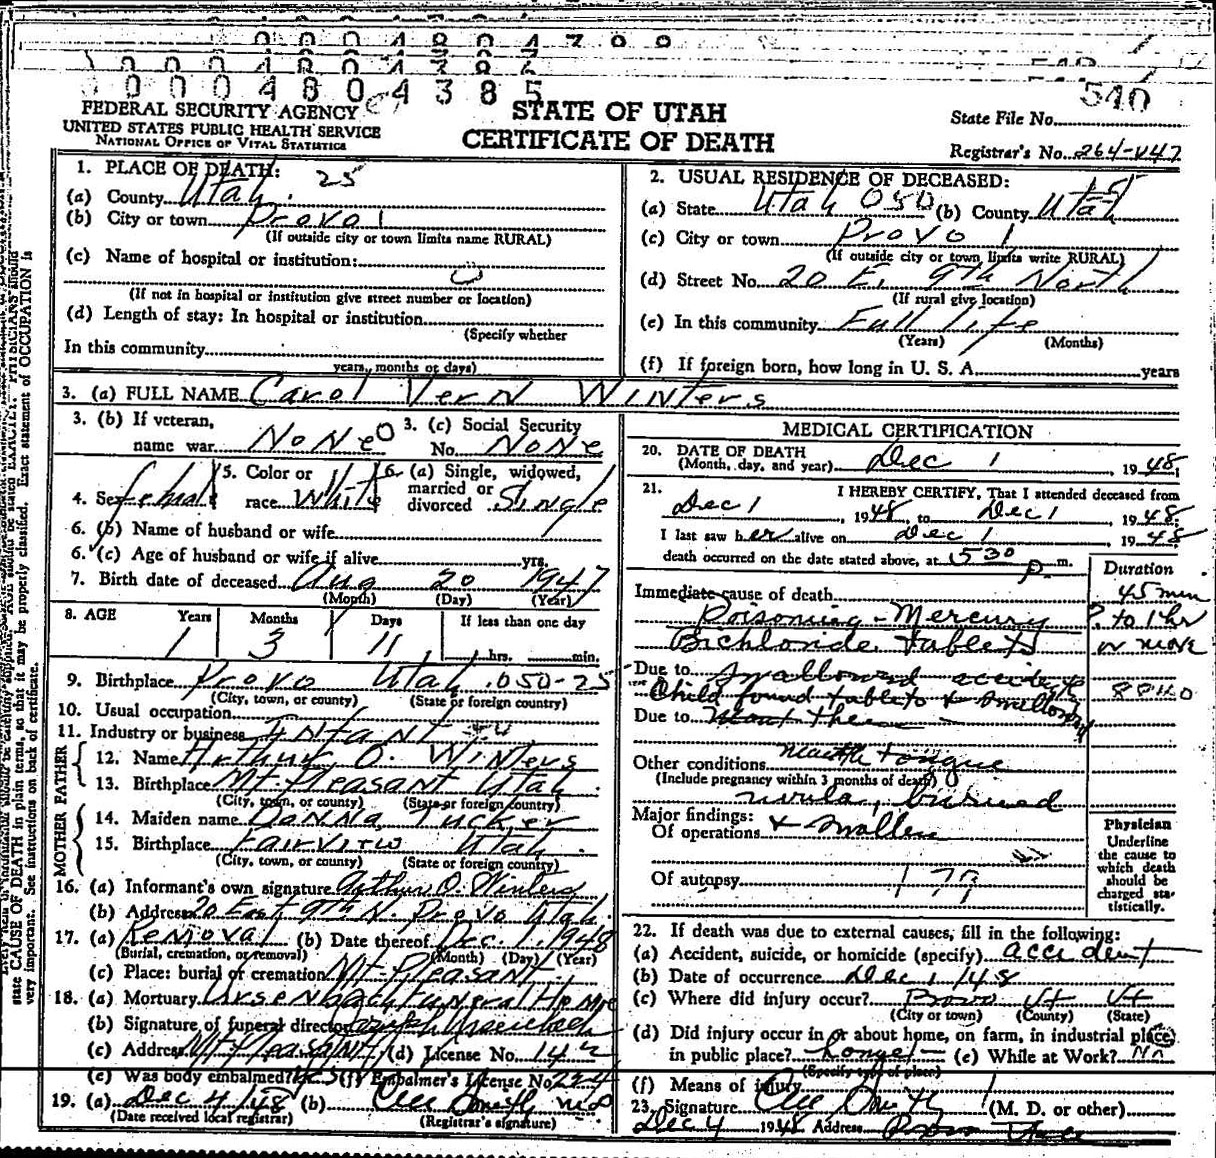 0 0 0 4 8 0 4 3 8 5
540
FEDERAL SECURITY AGENCY
UNITED STATES PUBLIC HEALTH SERVICE
NATIONAL OFFICE OF VITAL STATISTICS
STATE OF UTAH
CERTIFICATE OF DEATH
State File No.
Registrar's No. 264-V47
1. PLACE OF DEATH: 25
(a) County Utah
(b) City or town Provo 1
(If outside city or town limits name RURAL)
(c) Name of hospital or institution:
(If not in hospital or institution give street number or location)
(d) Length of stay: In hospital or institution
(Specify whether
In this community
years, months or days)
2. USUAL RESIDENCE OF DECEASED:
(a) State Utah 050 (b) County Utah
(c) City or town Provo 1
(If outside city or town limits write RURAL)
(d) Street No. 20 E. 9th North
(If rural give location)
(e) In this community Full life
(Years) (Months)
(f) If foreign born, how long in U. S. A. years
3. (a) FULL NAME Carol Vern Winters
3. (b) If veteran, name war NONE 0
3. (c) Social Security No. NONE
4. Sex female
5. Color or race White
6. (a) Single, widowed, married or divorced Single
6. (b) Name of husband or wife
6. (c) Age of husband or wife if alive yrs.
7. Birth date of deceased Aug 20 1947
(Month) (Day) (Year)
8. AGE Years Months Days If less than one day
1 3 11 hrs. min.
9. Birthplace Provo Utah 050-25
(City, town, or county) (State or foreign country)
10. Usual occupation
11. Industry or business Infant
FATHER
12. Name Arthur O. Winters
13. Birthplace Mt. Pleasant Utah
(City, town, or county) (State or foreign country)
MOTHER
14. Maiden name Donna Tucker
15. Birthplace Fairview Utah
(City, town, or county) (State or foreign country)
16. (a) Informant's own signature Arthur O. Winters
(b) Address 20 East 9th N. Provo Utah.
17. (a) Removal (b) Date thereof Dec. 1, 1948
(Burial, cremation, or removal) (Month) (Day) (Year)
(c) Place: burial or cremation Mt-Pleasant
18. (a) Mortuary Ursenbach Funeral Home
(b) Signature of funeral director Ursenbach
(c) Address Mt Pleasant (d) License No. 142
(e) Was body embalmed? Yes (f) Embalmer's License No. 224
19. (a) Dec 4/48 (b) Smith MD
(Date received local registrar) (Registrar's signature)
MEDICAL CERTIFICATION
20. DATE OF DEATH
(Month, day, and year) Dec 1, 1948
21. I HEREBY CERTIFY, That I attended deceased from
Dec 1, 1948, to Dec 1, 1948.
I last saw her alive on Dec 1 1948
death occurred on the date stated above, at 530 p m.
Duration
Immediate cause of death 45 min
Poisoning - Mercury ? to 1 hr
Bichloride tablets or more
Due to Swallowed 8840
Child found tablets &
Due to
Other conditions mouth tongue
(Include pregnancy within 3 months of death)
uvula, burned
Major findings:
Of operations & swollen
Of autopsy 179
Physician
Underline
the cause to
which death
should be
charged sta-
tistically.
22. If death was due to external causes, fill in the following:
(a) Accident, suicide, or homicide (specify) accident
(b) Date of occurrence Dec 1/48
(c) Where did injury occur? Provo Ut Ut
(City or town) (County) (State)
(d) Did injury occur in or about home, on farm, in industrial place,
in public place? (e) While at Work? No
(Specify type of place)
(f) Means of injury
23. Signature Smith (M. D. or other)
Dec 4 1948 Address Provo Utah
state CAUSE OF DEATH in plain terms, so that it may be properly classified. Exact statement of OCCUPATION is
very important. See instructions on back of certificate.